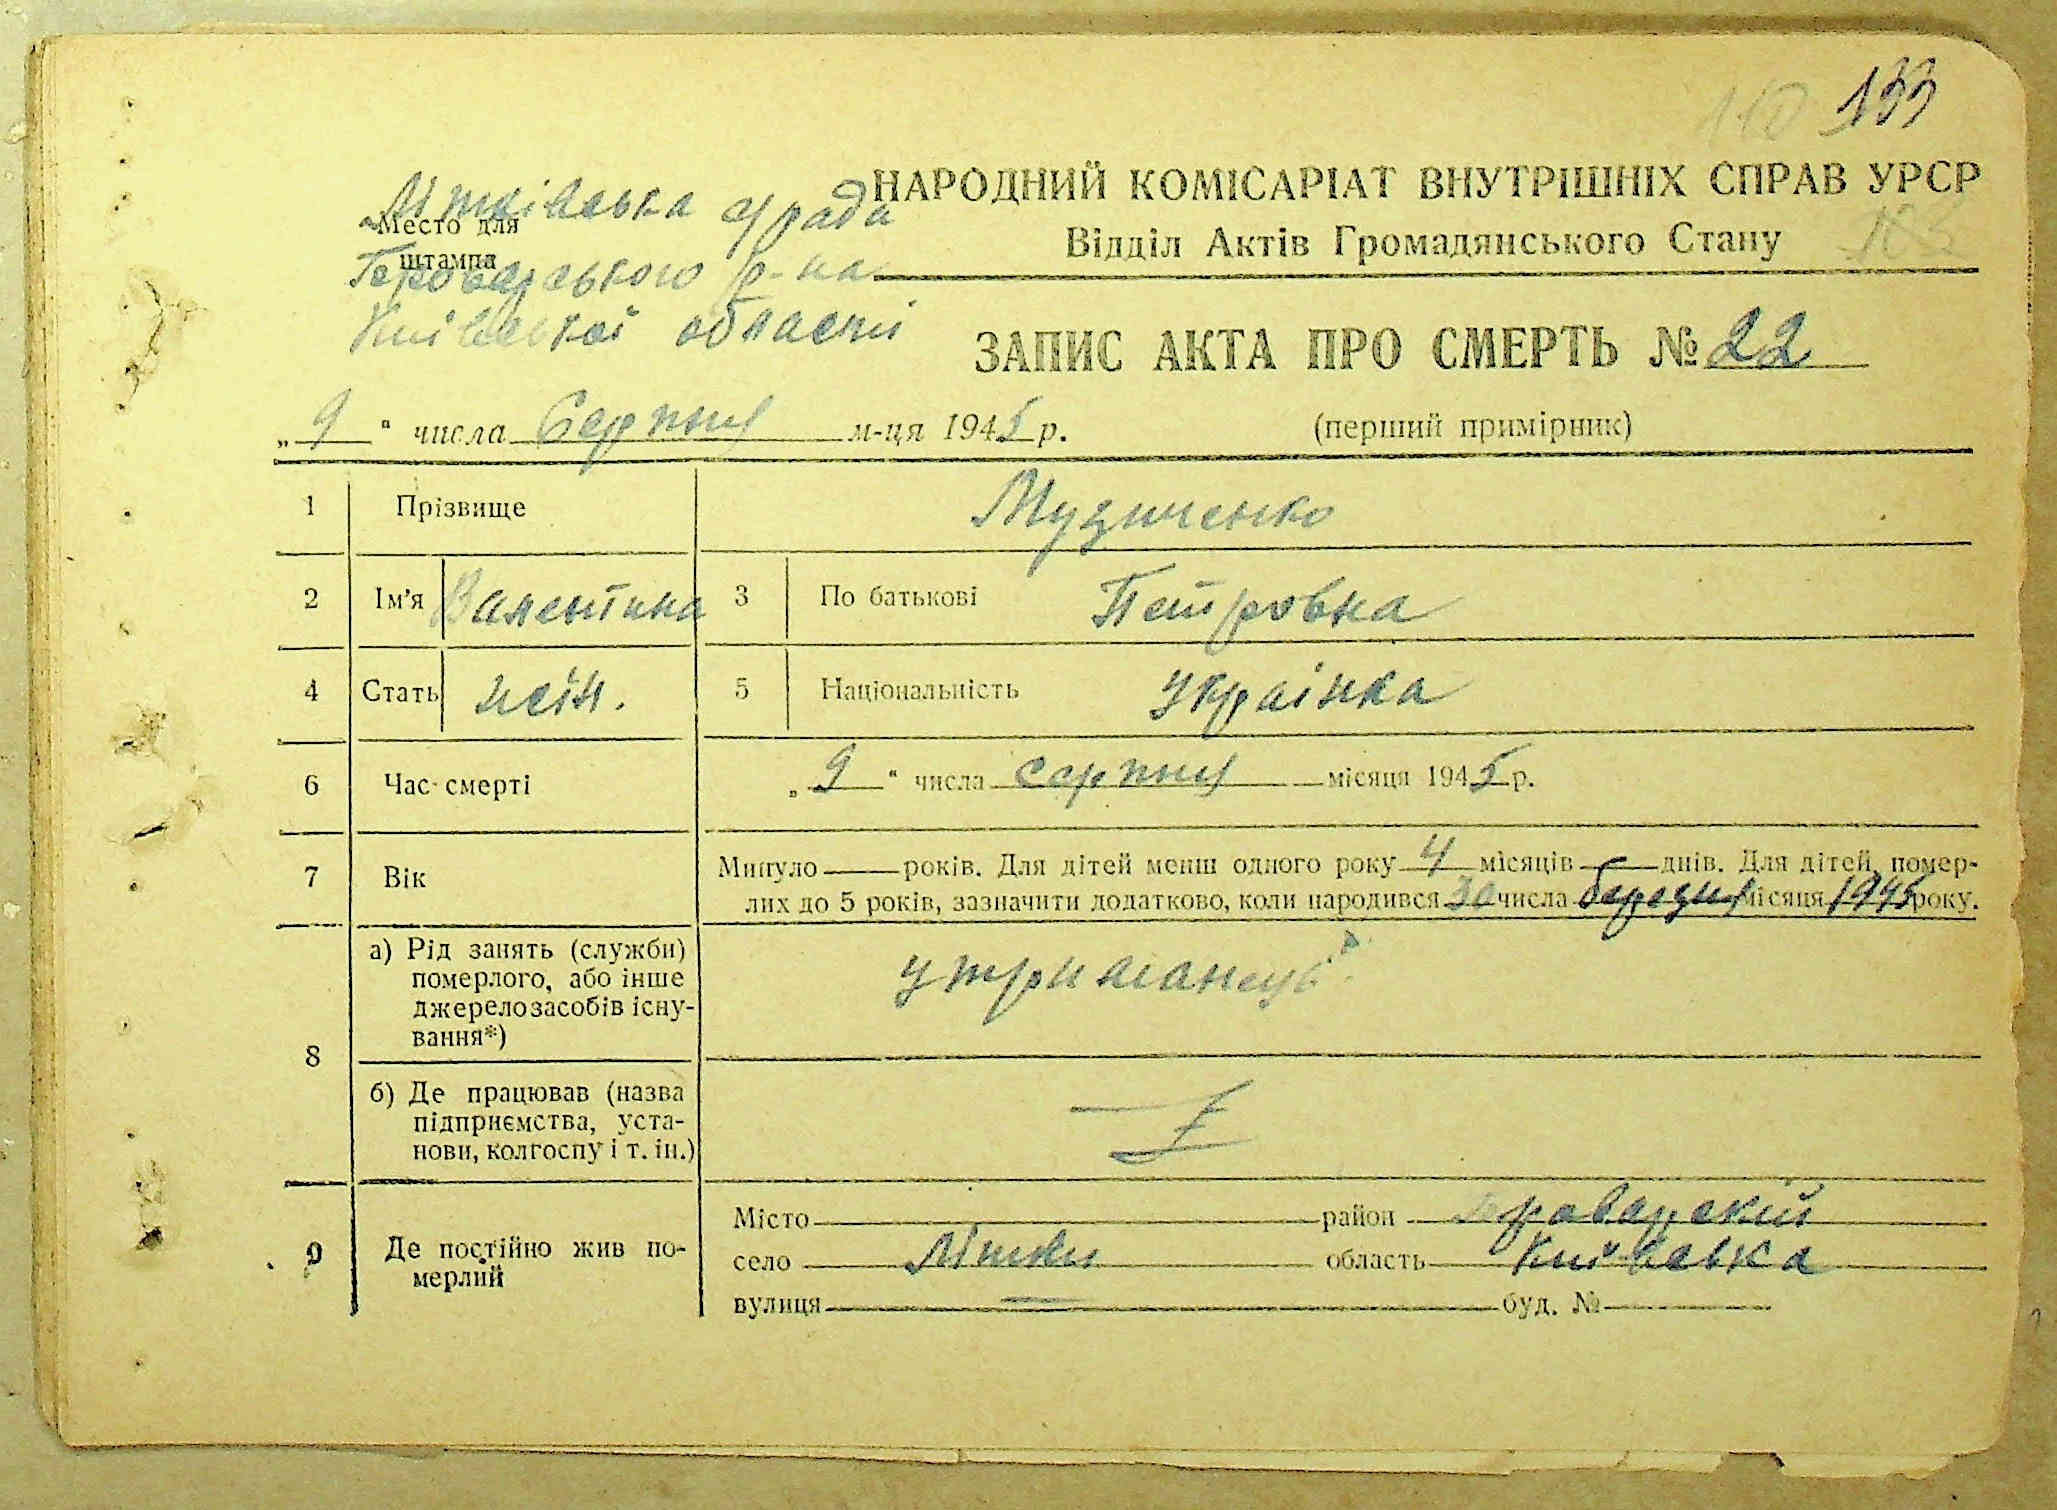 133
НАРОДНИЙ КОМІСАРІАТ ВНУТРІШНІХ СПРАВ УРСР
Відділ Актів Громадянського Стану
103
Літківська с/рада
Место для штампа
Броварського р-на
Київської області
ЗАПИС АКТА ПРО СМЕРТЬ № 22
„ 9 " числа Серпня м-ця 1945 р. (перший примірник)
1 Прізвище Музиченко
2 Ім'я Валентина 3 По батькові Петровна
4 Стать жін. 5 Національність українка
6 Час смерті „ 9 " числа серпня місяця 1945 р.
7 Вік Минуло — років. Для дітей менш одного року 4 місяців — днів. Для дітей, помер-
лих до 5 років, зазначити додатково, коли народився 30 числа березня місяця 1945 року.
8 а) Рід занять (служби)
померлого, або інше
джерело засобів існу-
вання*)
утриманець
б) Де працював (назва
підприємства, уста-
нови, колгоспу і т. ін.)
9 Де постійно жив по-
мерлий
Місто район Броварскій
село Літки область Київська
вулиця — буд. №